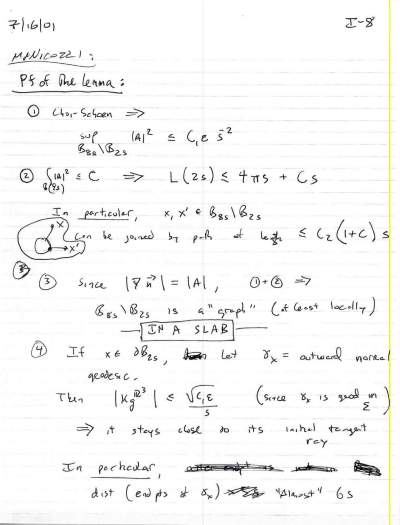 7/16/01 I-8
MINICOZZI:
Pf of the Lemma:
① Choi-Schoen ⇒
sup |A|² ≤ C₁ε s⁻²
B₈ₛ\B₂ₛ
② ∫ |A|² ≤ C ⇒ L(2s) ≤ 4πs + Cs
B(2s)
In particular, x, x' ∈ B₈ₛ\B₂ₛ
x can be joined by path of length ≤ C₂(1+C) s
x'
③ Since |∇n⃗| = |A|, ①+② ⇒
B₈ₛ\B₂ₛ is a "graph" (at least locally)
IN A SLAB
④ If x ∈ ∂B₂ₛ, let γₓ = outward normal
geodesic.
Then |k_g^{R³}| ≤ √(C₁ε)/s (since γₓ is geod in Σ)
⇒ it stays close to its initial tangent
ray
In particular,
dist (endpts of γₓ) "almost" 6s